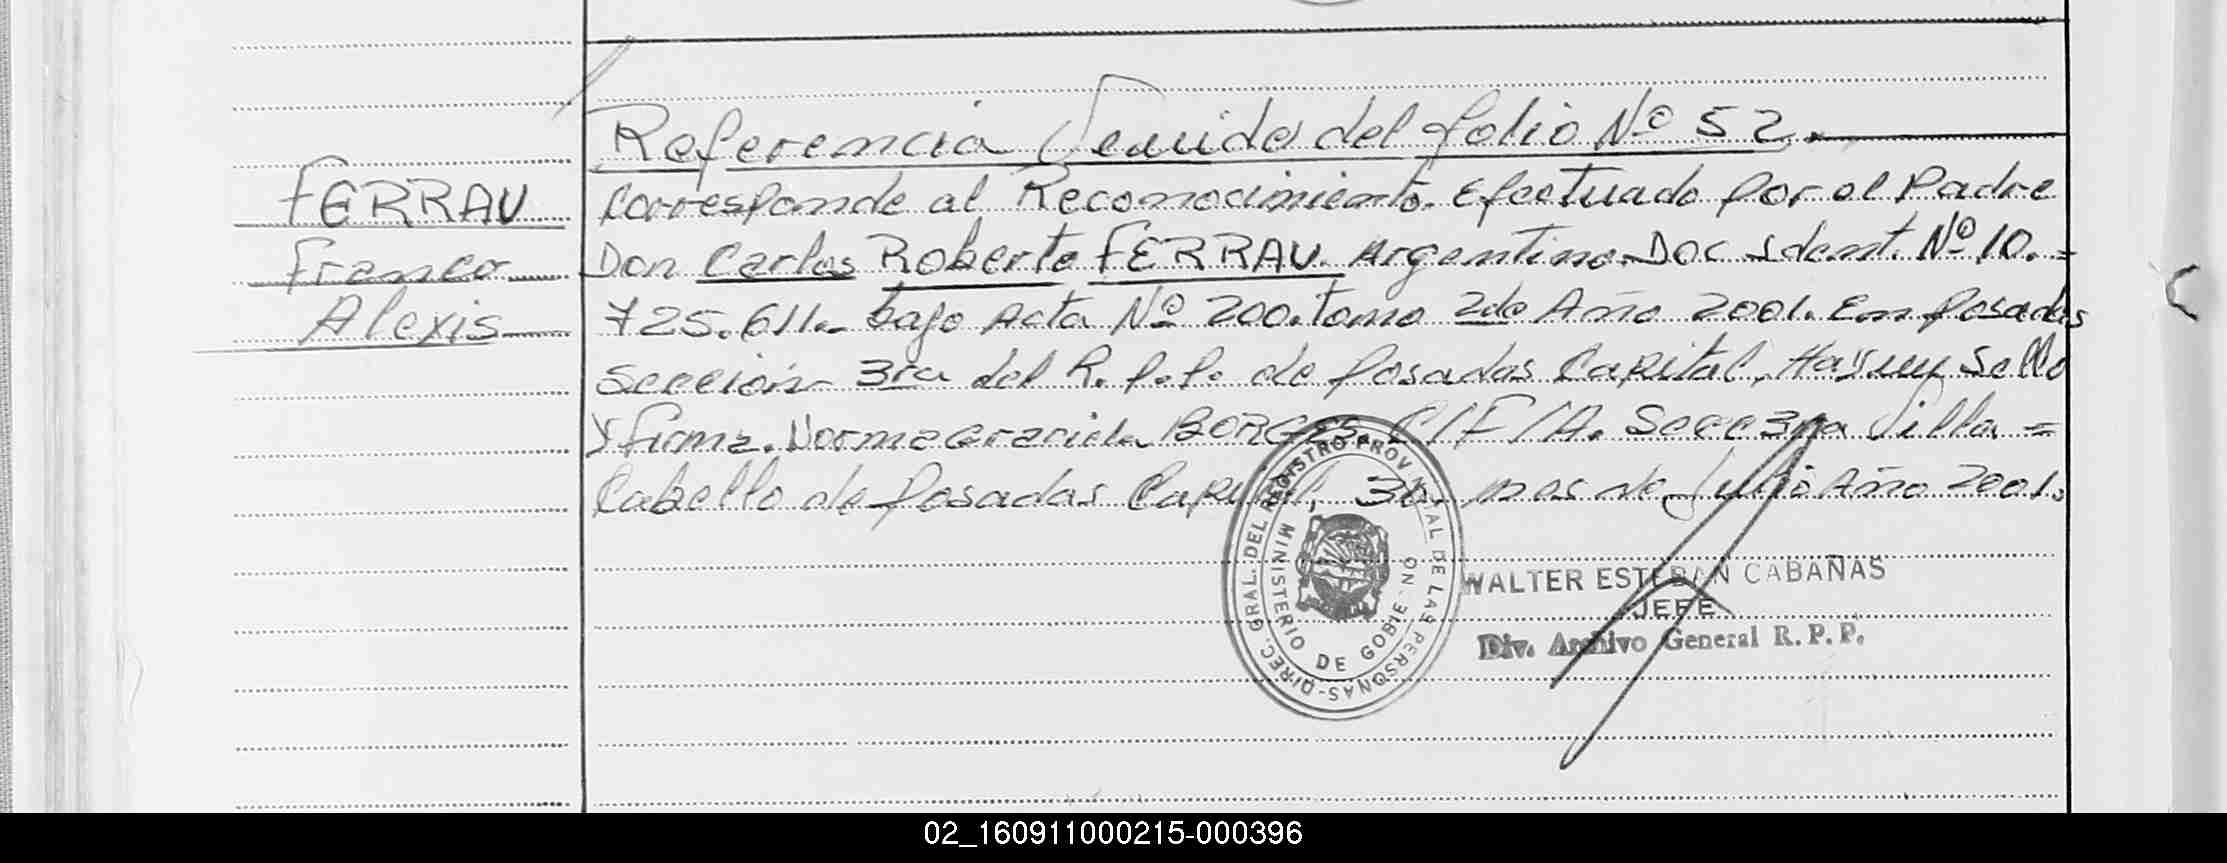 Referencia Venida del folio Nº 52.
FERRAU
Franco
Alexis
Corresponde al Reconocimiento. Efectuado por el Padre
Don Carlos Roberto FERRAU. Argentino. Doc Ident. Nº 10.=
725.611.- bajo Acta Nº 200. tomo 2do Año 2001. En Posadas
Sección 3ra del R.P.P. de Posadas Capital, Hay un Sello
y firma. Norma Graciela BORGES. C/F/A. Secc 3ra Villa =
Cabello de Posadas Capital, 30. mes de Julio Año 2001.
DIREC. GRAL. DEL REGISTRO PROVINCIAL DE LAS PERSONAS-
MINISTERIO DE GOBIERNO
WALTER ESTEBAN CABAÑAS
JEFE
Div. Archivo General R. P. P.
02_160911000215-000396